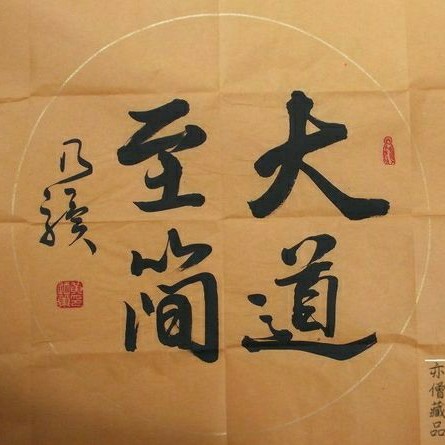 大道
至简
亦僧藏品